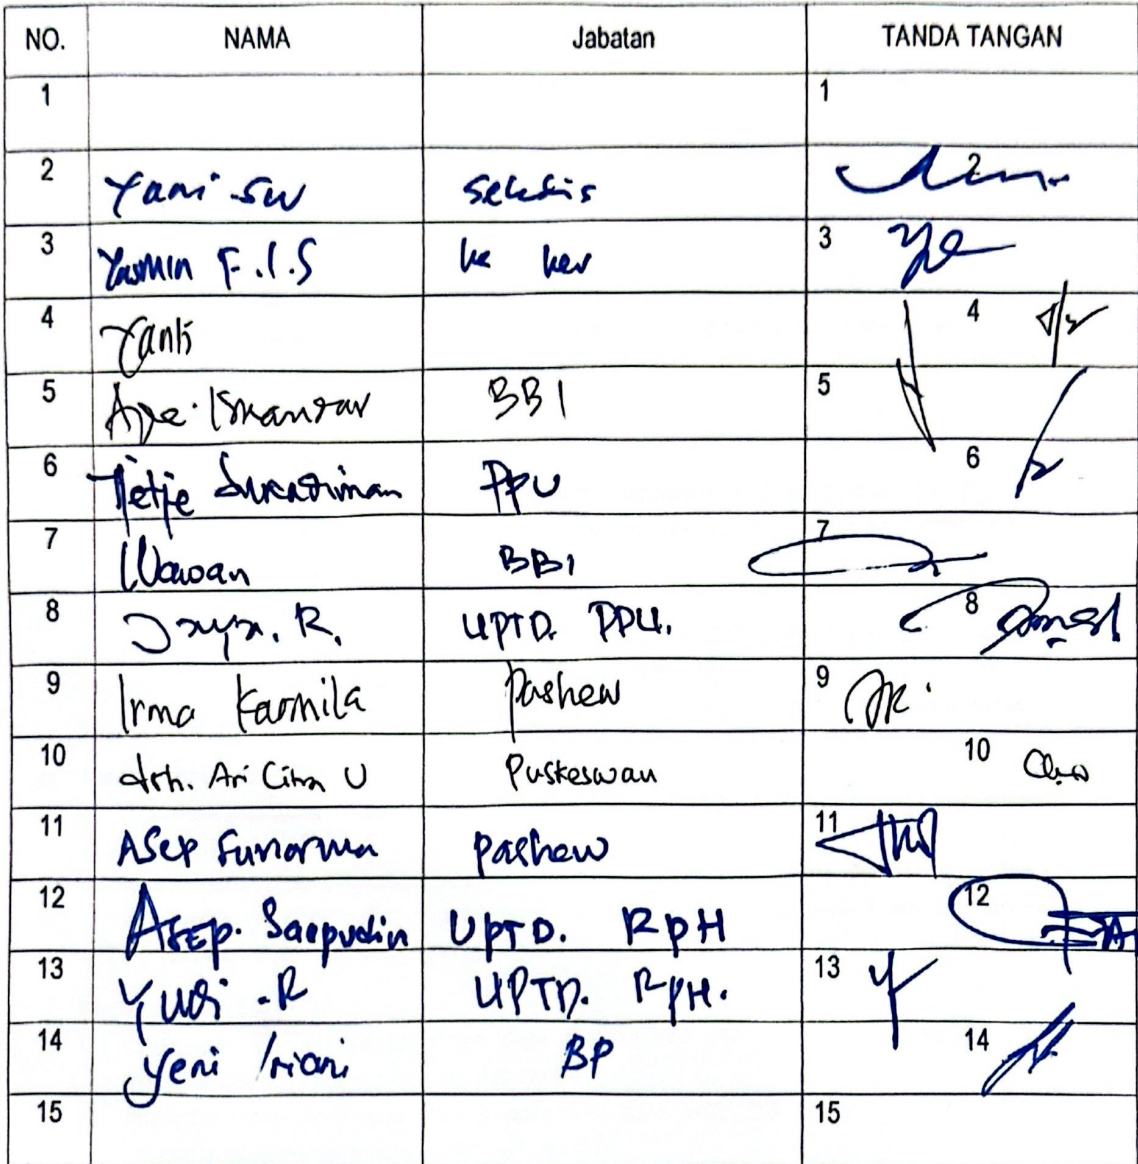 NO. NAMA Jabatan TANDA TANGAN
1 1
2 Yani SW seksis 2
3 Yasmin F.I.S ke kev 3
4 Yanti 4
5 Ape Iskandar BBI 5
6 Tjetje PPU 6
7 Wawan BBI 7
8 Jaya. R. UPTD. PPU. 8
9 Irma Karmila pashew 9
10 drh. Ari Citra U Puskeswan 10
11 Asep Sunarma pashew 11
12 Asep. Saepudin UPTD. RPH 12
13 Yudi .R UPTD. RPH. 13
14 Yeni Iriani BP 14
15 15